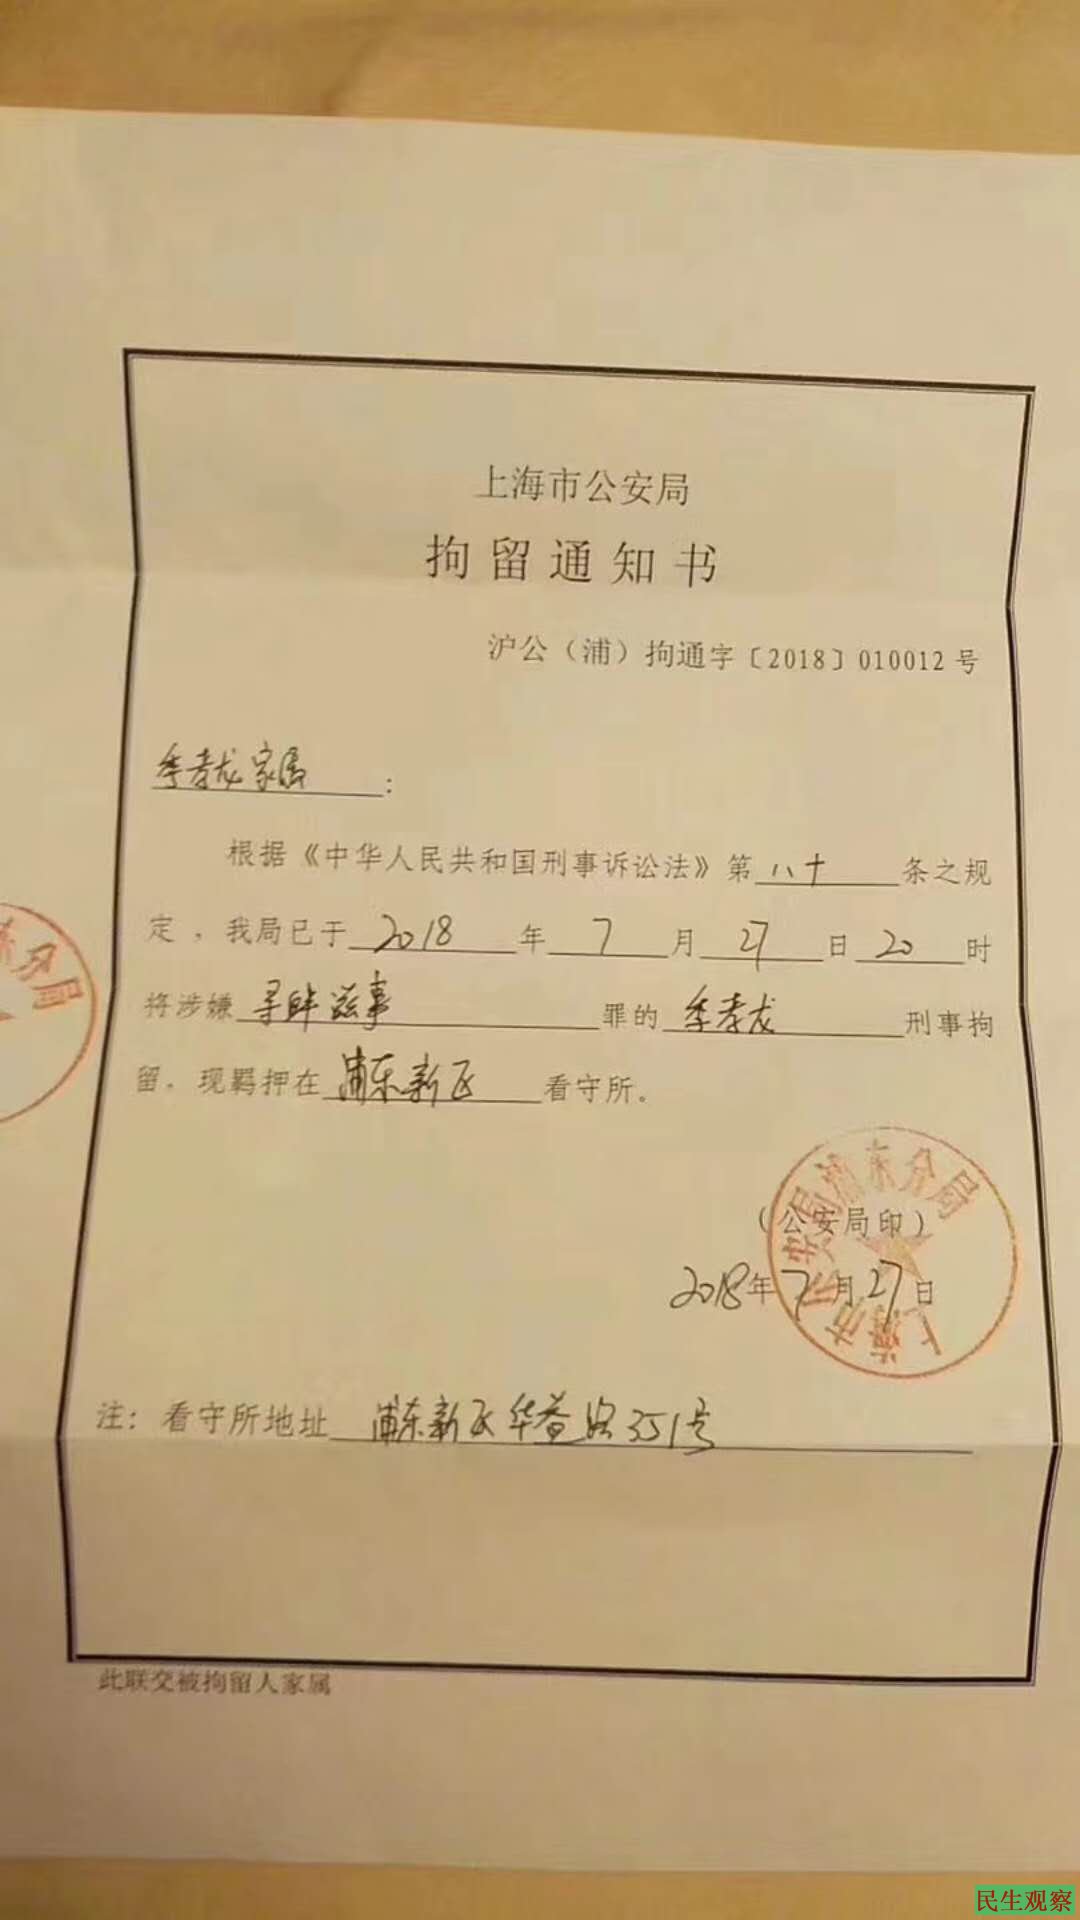 上海市公安局
拘留通知书
沪公（浦）拘通字〔2018〕010012号
季孝龙家属：
根据《中华人民共和国刑事诉讼法》第八十条之规
定，我局已于2018年7月27日20时
将涉嫌寻衅滋事罪的季孝龙刑事拘
留，现羁押在浦东新区看守所。
东分局
上海市公安局浦东分局
（公安局印）
2018年7月27日
注：看守所地址浦东新区华益路351号
此联交被拘留人家属
民生观察